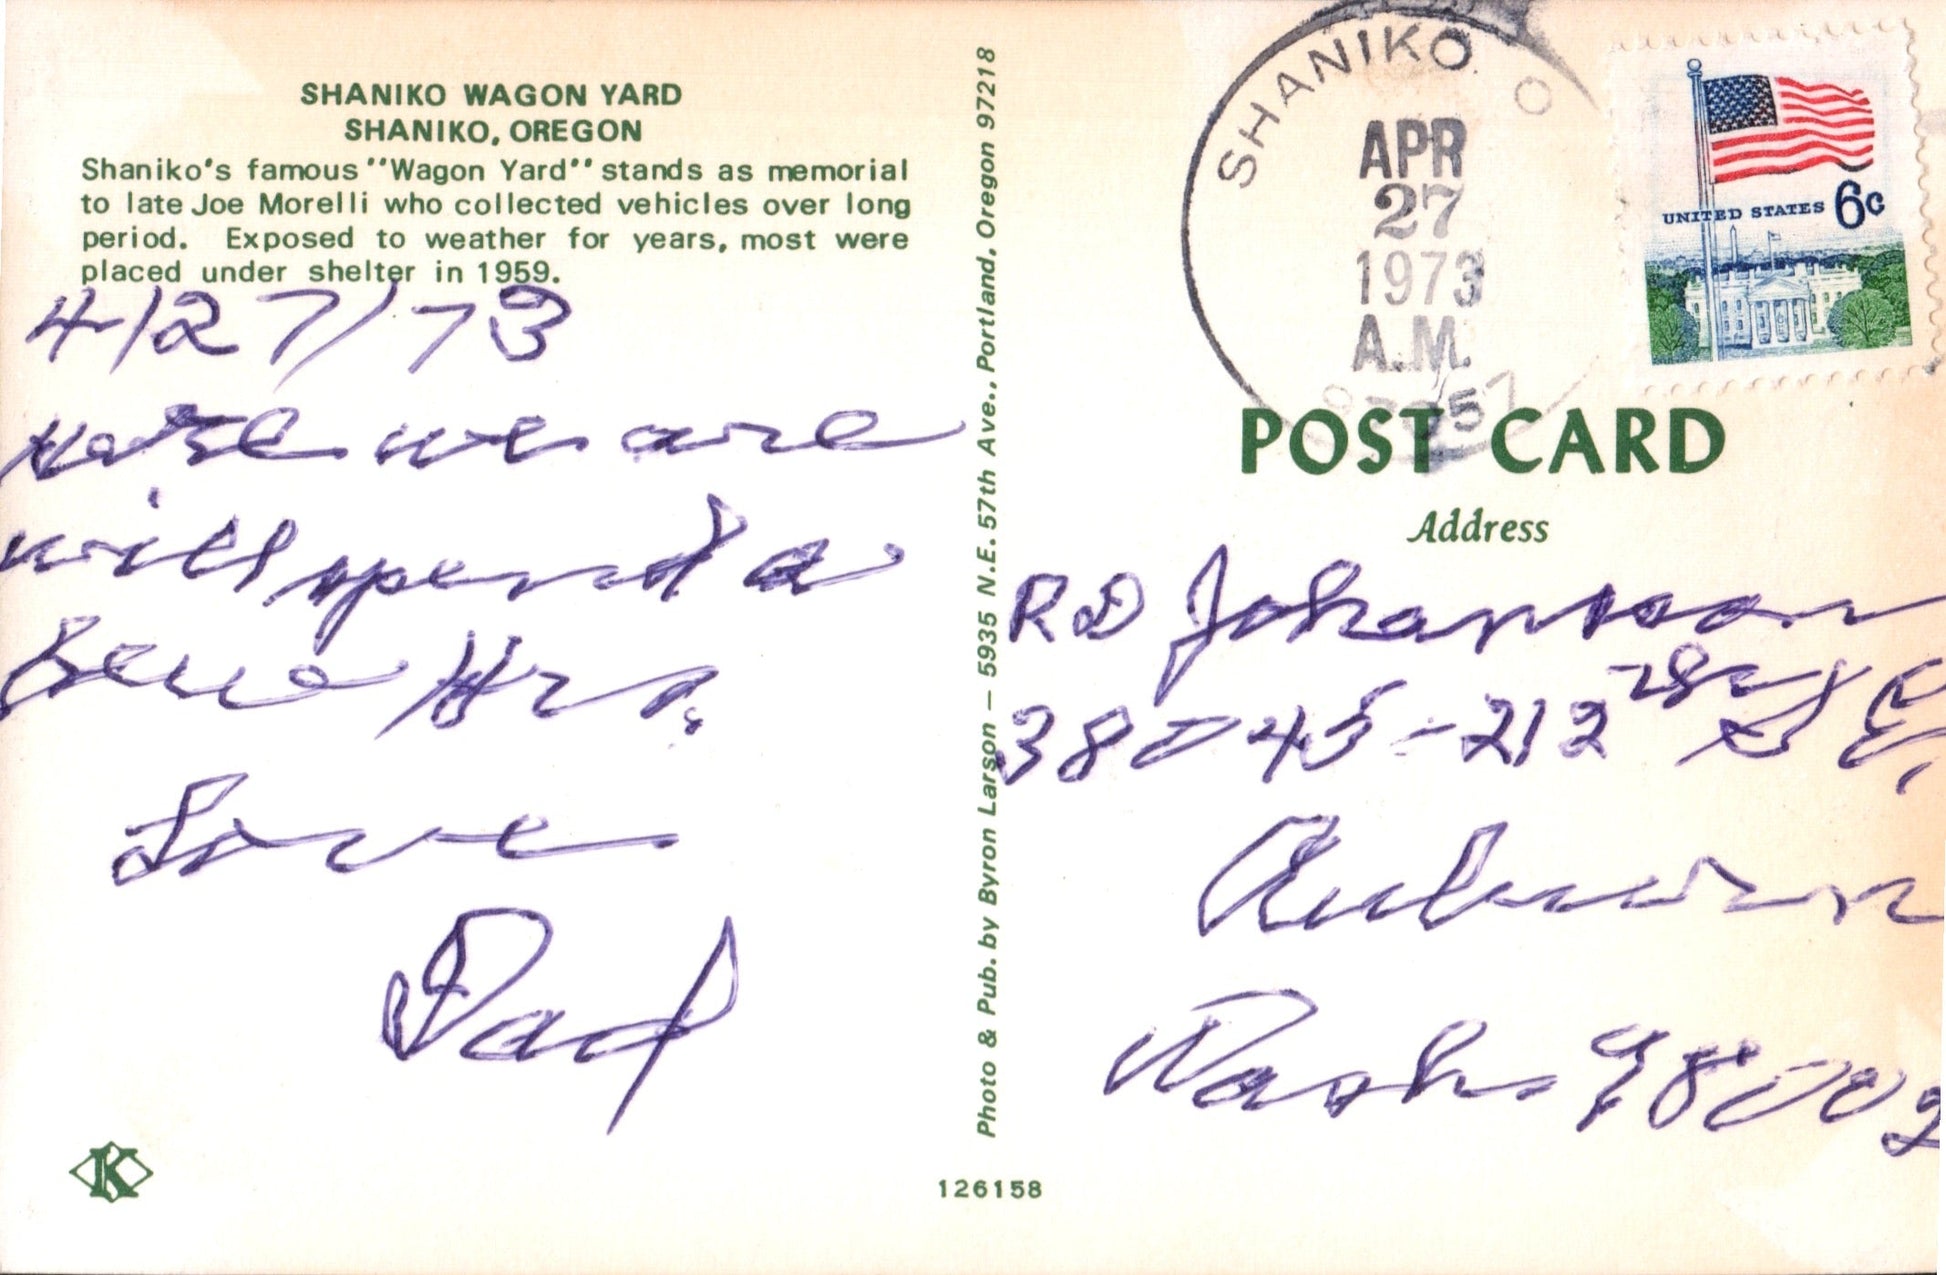 SHANIKO WAGON YARD
SHANIKO, OREGON
Shaniko's famous "Wagon Yard" stands as memorial
to late Joe Morelli who collected vehicles over long
period. Exposed to weather for years, most were
placed under shelter in 1959.
4/27/73
Here we are
will spend a
few Hrs.
Love
Dad
K
126158
Photo & Pub. by Byron Larson — 5935 N.E. 57th Ave., Portland, Oregon 97218
SHANIKO O
APR
27
1973
A.M.
UNITED STATES 6c
POST CARD
Address
R D Johanson
38045-212
Auburn
Wash 98002